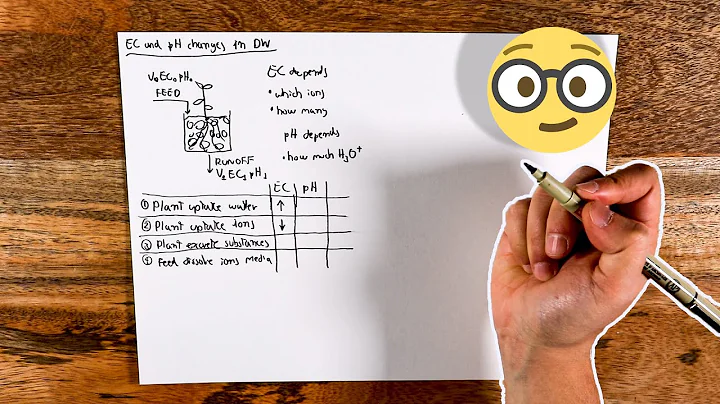 EC and pH changes in DW
V₀EC₀pH₀
FEED
RUNOFF
V₁EC₁pH₁
EC depends
• which ions
• how many
pH depends
• how much H₃O⁺
EC pH
① Plant uptake water ↑
② Plant uptake ions ↓
③ Plant excrete substances
④ Feed dissolve ions media